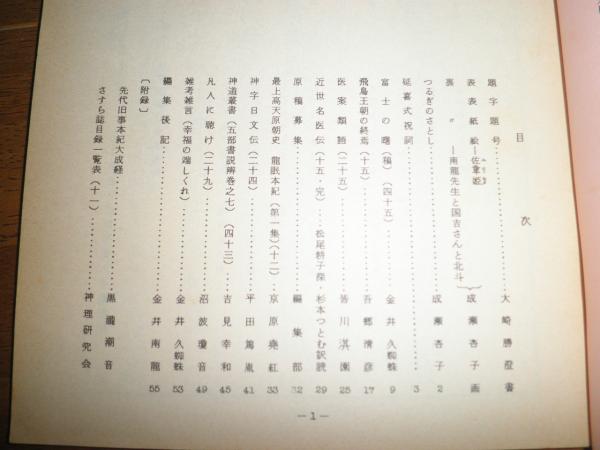 目次
題字題号………大崎勝澄書
表表紙絵―佐韋姫
裏〃―南龍先生と国吉さんと北斗
成瀬杏子画
つるぎのさとし………成瀬杏子 2
延喜式祝詞………3
富士の曙(稿)(四十五)………金井久蜘蛛 9
飛鳥王朝の終焉(十五)………吾郷清彦 17
医案類語(二十五)………皆川淇園 25
近世名医伝(十五・完)………松尾耕子蔭・杉本つとむ訳読 29
原稿募集………編集部 32
最上高天原朝史 龍眠本紀(第一集)(十二)…京原堯紅 33
神字日文伝(二十四)………平田篤胤 41
神道叢書(五部書説辨巻之七)(四十三)…吉見幸和 45
凡人に聴け(二十九)………沼波瓊音 49
雑考雑言(幸福の端しくれ)………金井久蜘蛛 53
編集後記………金井南龍 55
〔附録〕
先代旧事本紀大成経………黒瀧潮音
さすら誌目録一覧表(十一)………神理研究会
―1―